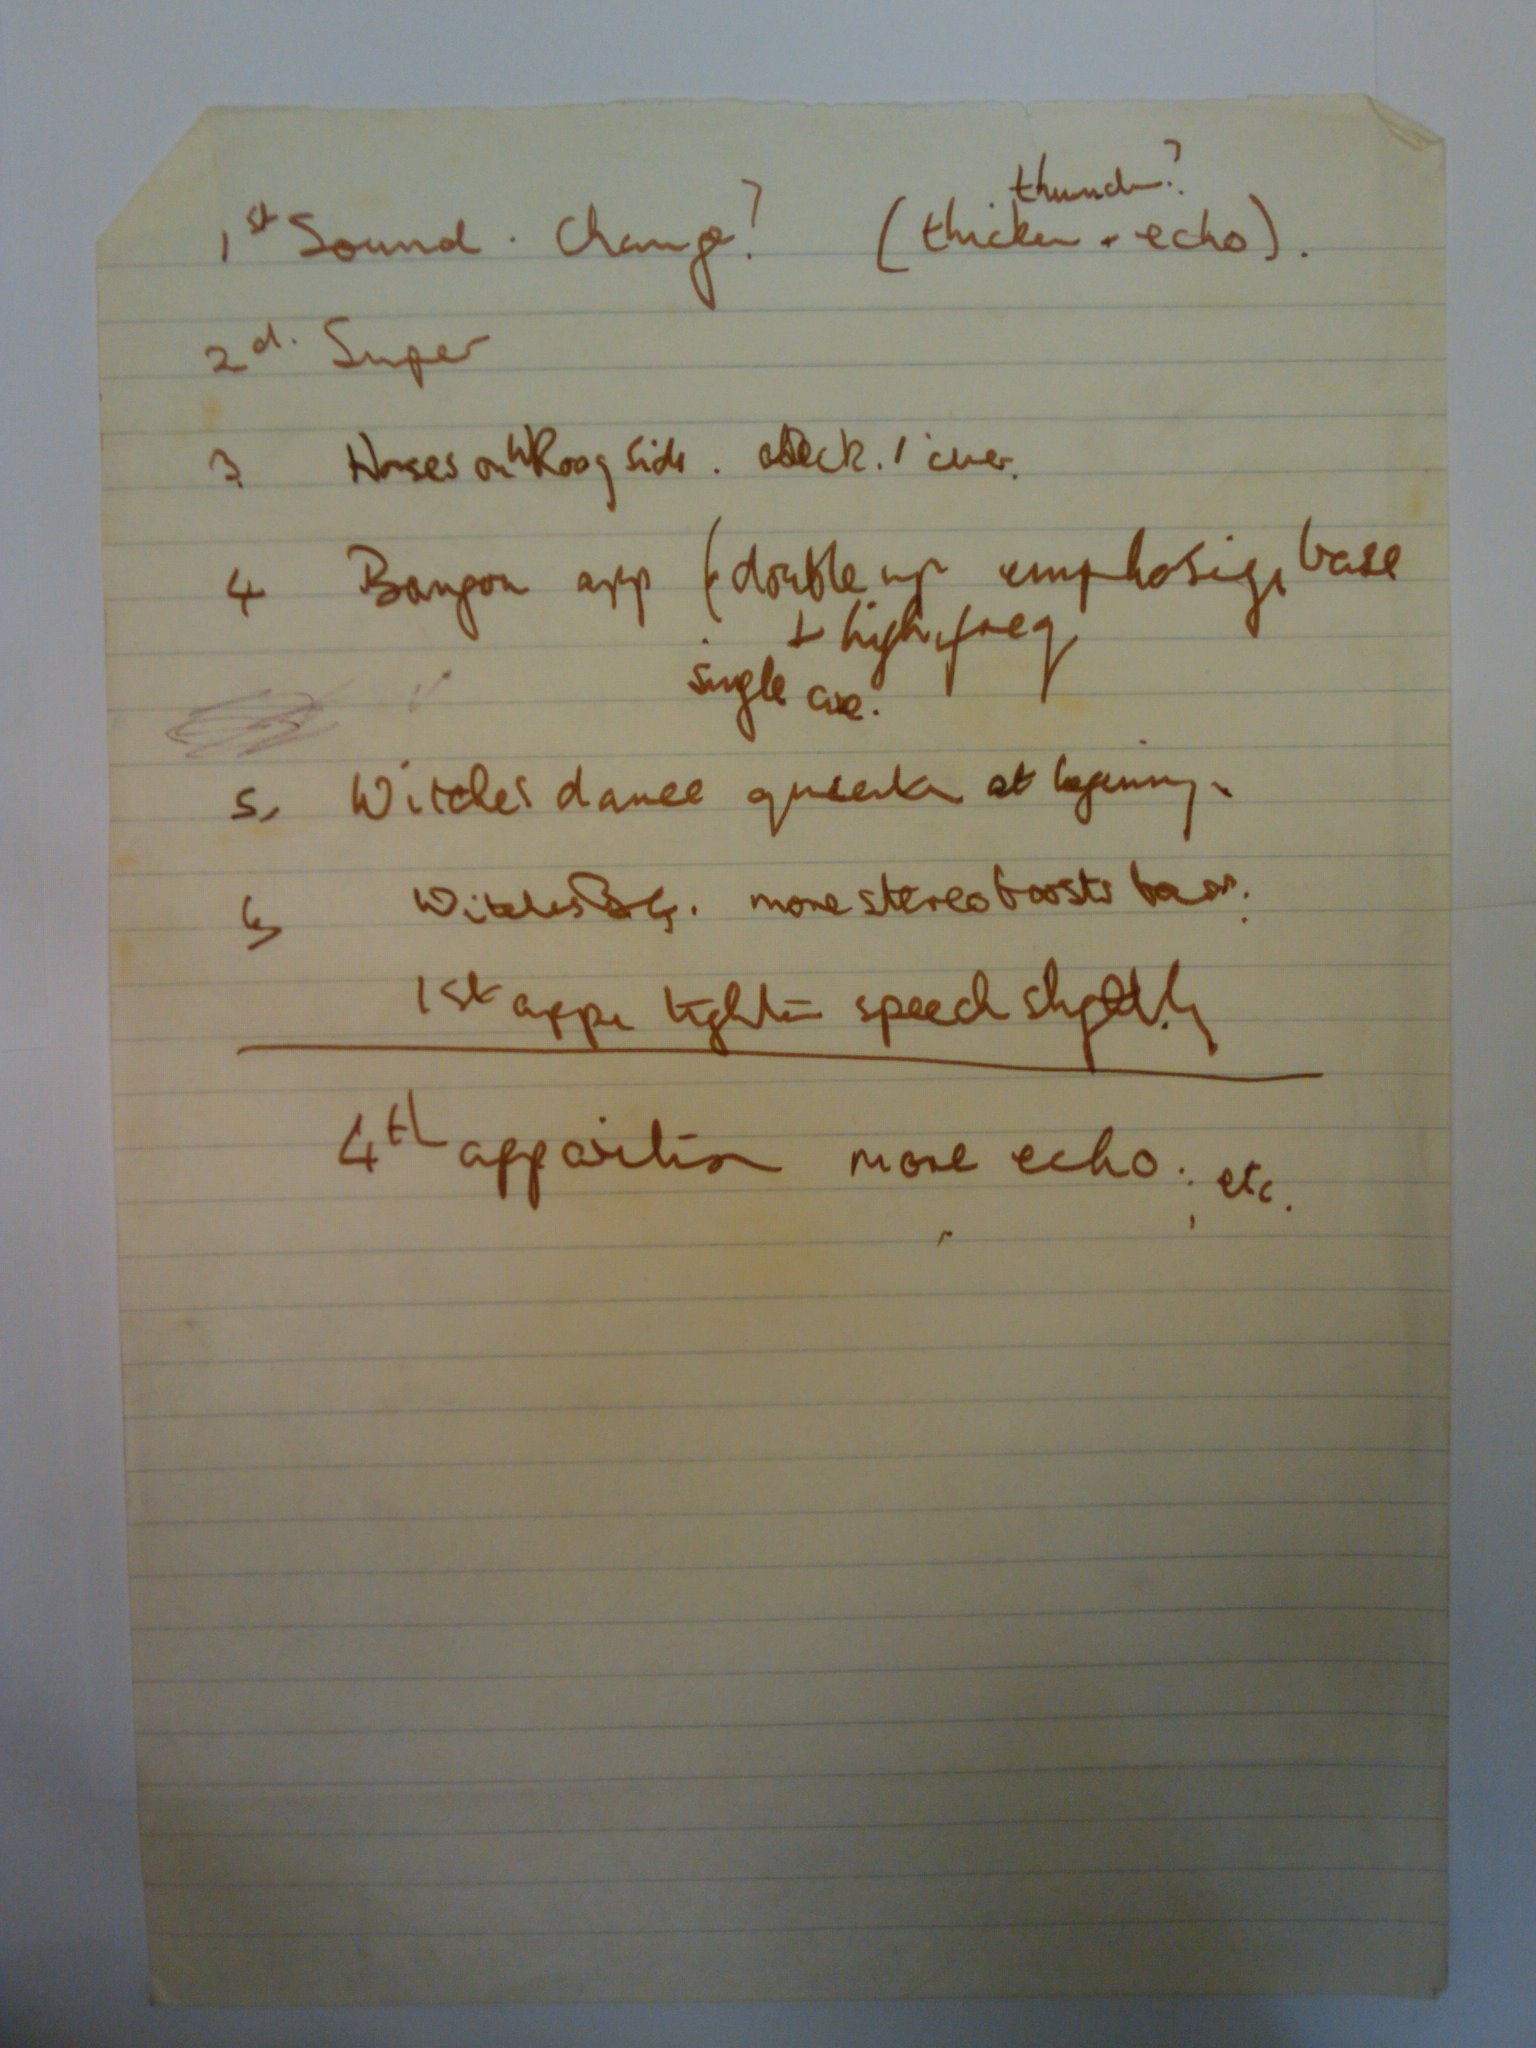 thunder?
1st Sound. Change? (thicker + echo).
2d. Super
3 Horses on wRong side. check. 1 cue.
4 app (double up emphasize base
+ high freq
single cue.
5, Witches dance quicker at beginning.
6, Witches more stereo boosts
1st app. tighten speech slightly
4th apparition more echo. ; etc.